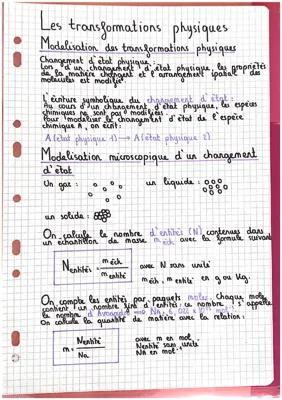 Les transformations physiques
Modélisation des transformations physiques
Changement d'état physique :
Lors d'un changement d'état physique, les propriétés
de la matière changent et l'arrangement spatial des
molécules est modifié.
L'écriture symbolique du changement d'état :
Au cours d'un changement d'état physique, les espèces
chimiques ne sont pas modifiées.
Pour modéliser le changement d'état de l'espèce
chimique A, on écrit :
A (état physique 1) → A (état physique 2)
Modélisation microscopique d'un changement
d'état
Un gaz : un liquide :
un solide :
On calcule le nombre d'entités (N) contenues dans
un échantillon de masse m éch avec la formule suivante
N entités = m éch / m entité avec N sans unité
m éch, m entité en g ou kg.
On compte les entités par paquets moles. Chaque mole
contient un nombre d'entités, ce nombre s'appelle
le nombre d'Avogadro ⟹ Na = 6,022 x 10²³ mol⁻¹
On calcule la quantité de matière avec la relation :
n = N entité / Na avec n en mol
N entité sans unité
NA en mol⁻¹